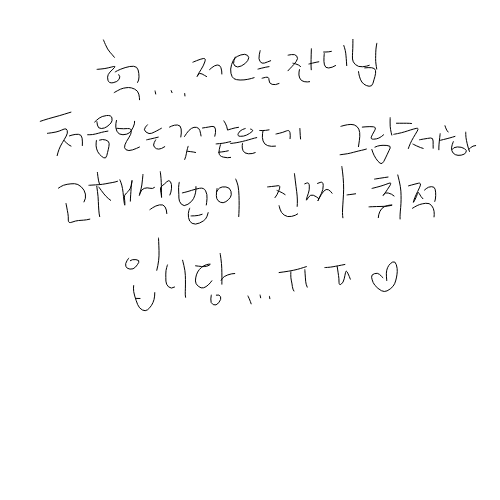 헉... 저오늘잔디님
처음보는것같은데 그림체하
고채색법이 진짜 취적
입니당...ㅠㅠ♡